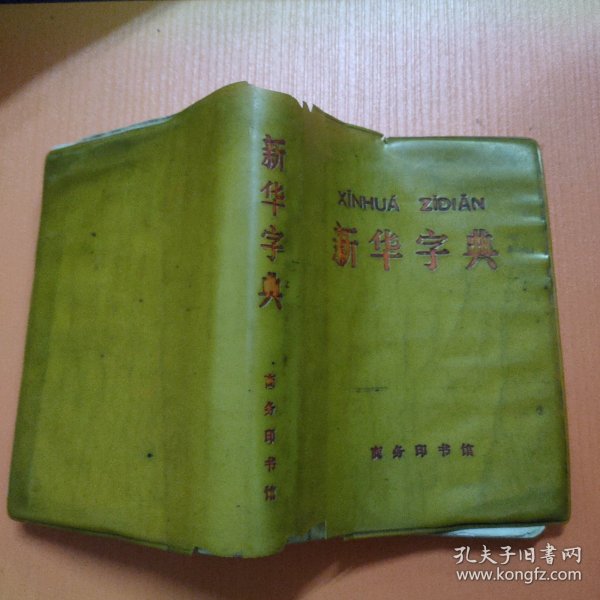 新华字典
商务印书馆
XĪNHUÁ ZÌDIǍN
新华字典
商务印书馆
孔夫子旧书网
www.kongfz.com